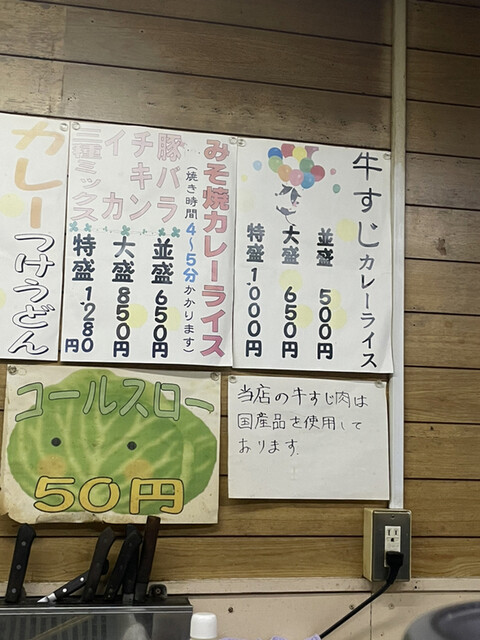 牛すじカレーライス
並盛 500円
大盛 650円
特盛 1,000円
みそ焼カレーライス
(焼き時間4~5分かかります)
豚バラ
チキン
イカ
三種ミックス
並盛 650円
大盛 850円
特盛 1,280円
カレー
つけうどん
コールスロー
50円
当店の牛すじ肉は
国産品を使用して
おります.